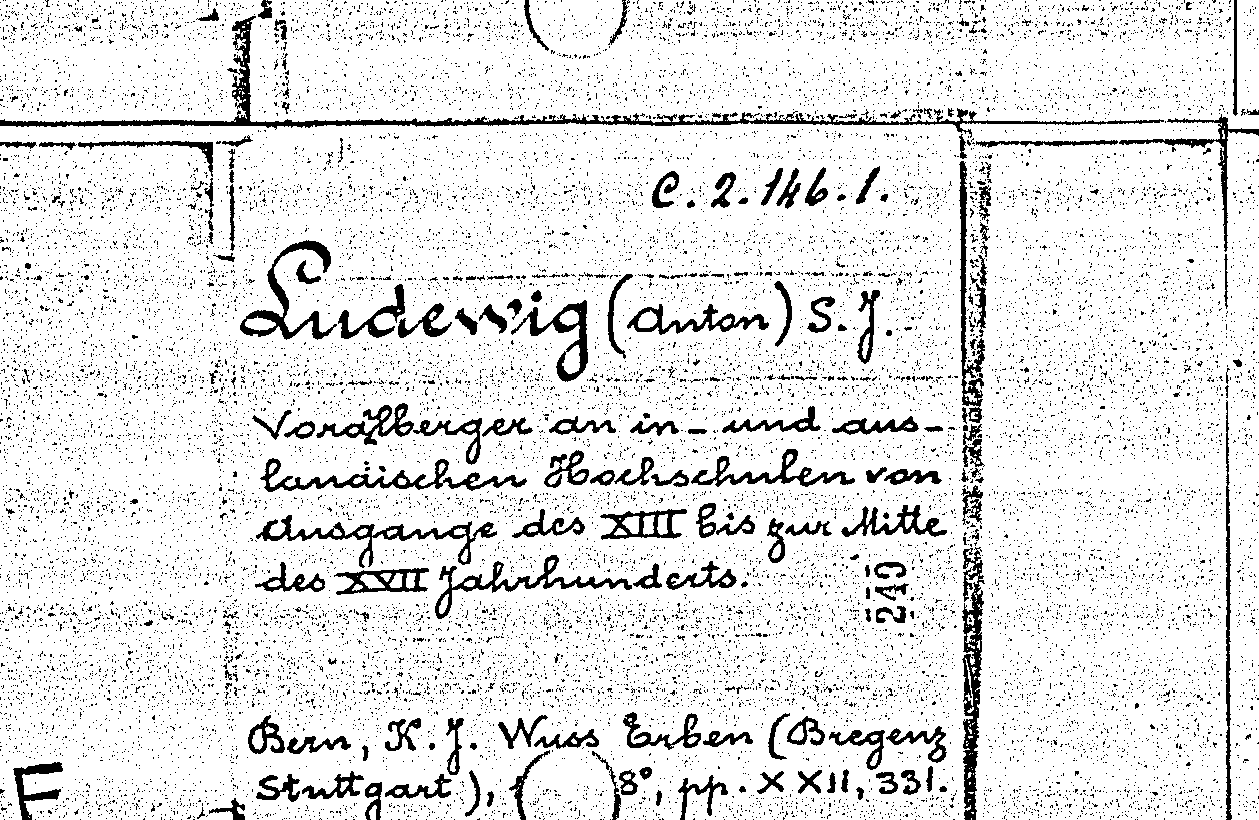 C. 2. 146. 1.
Ludewig (Anton) S. J.
Vorarlberger an in- und aus-
ländischen Hochschulen von
Ausgange des XIII bis zur Mitte
des XVII Jahrhunderts.
249
Bern, K. J. Wyss Erben (Bregenz
Stuttgart), 8°, pp. XXII, 331.
E